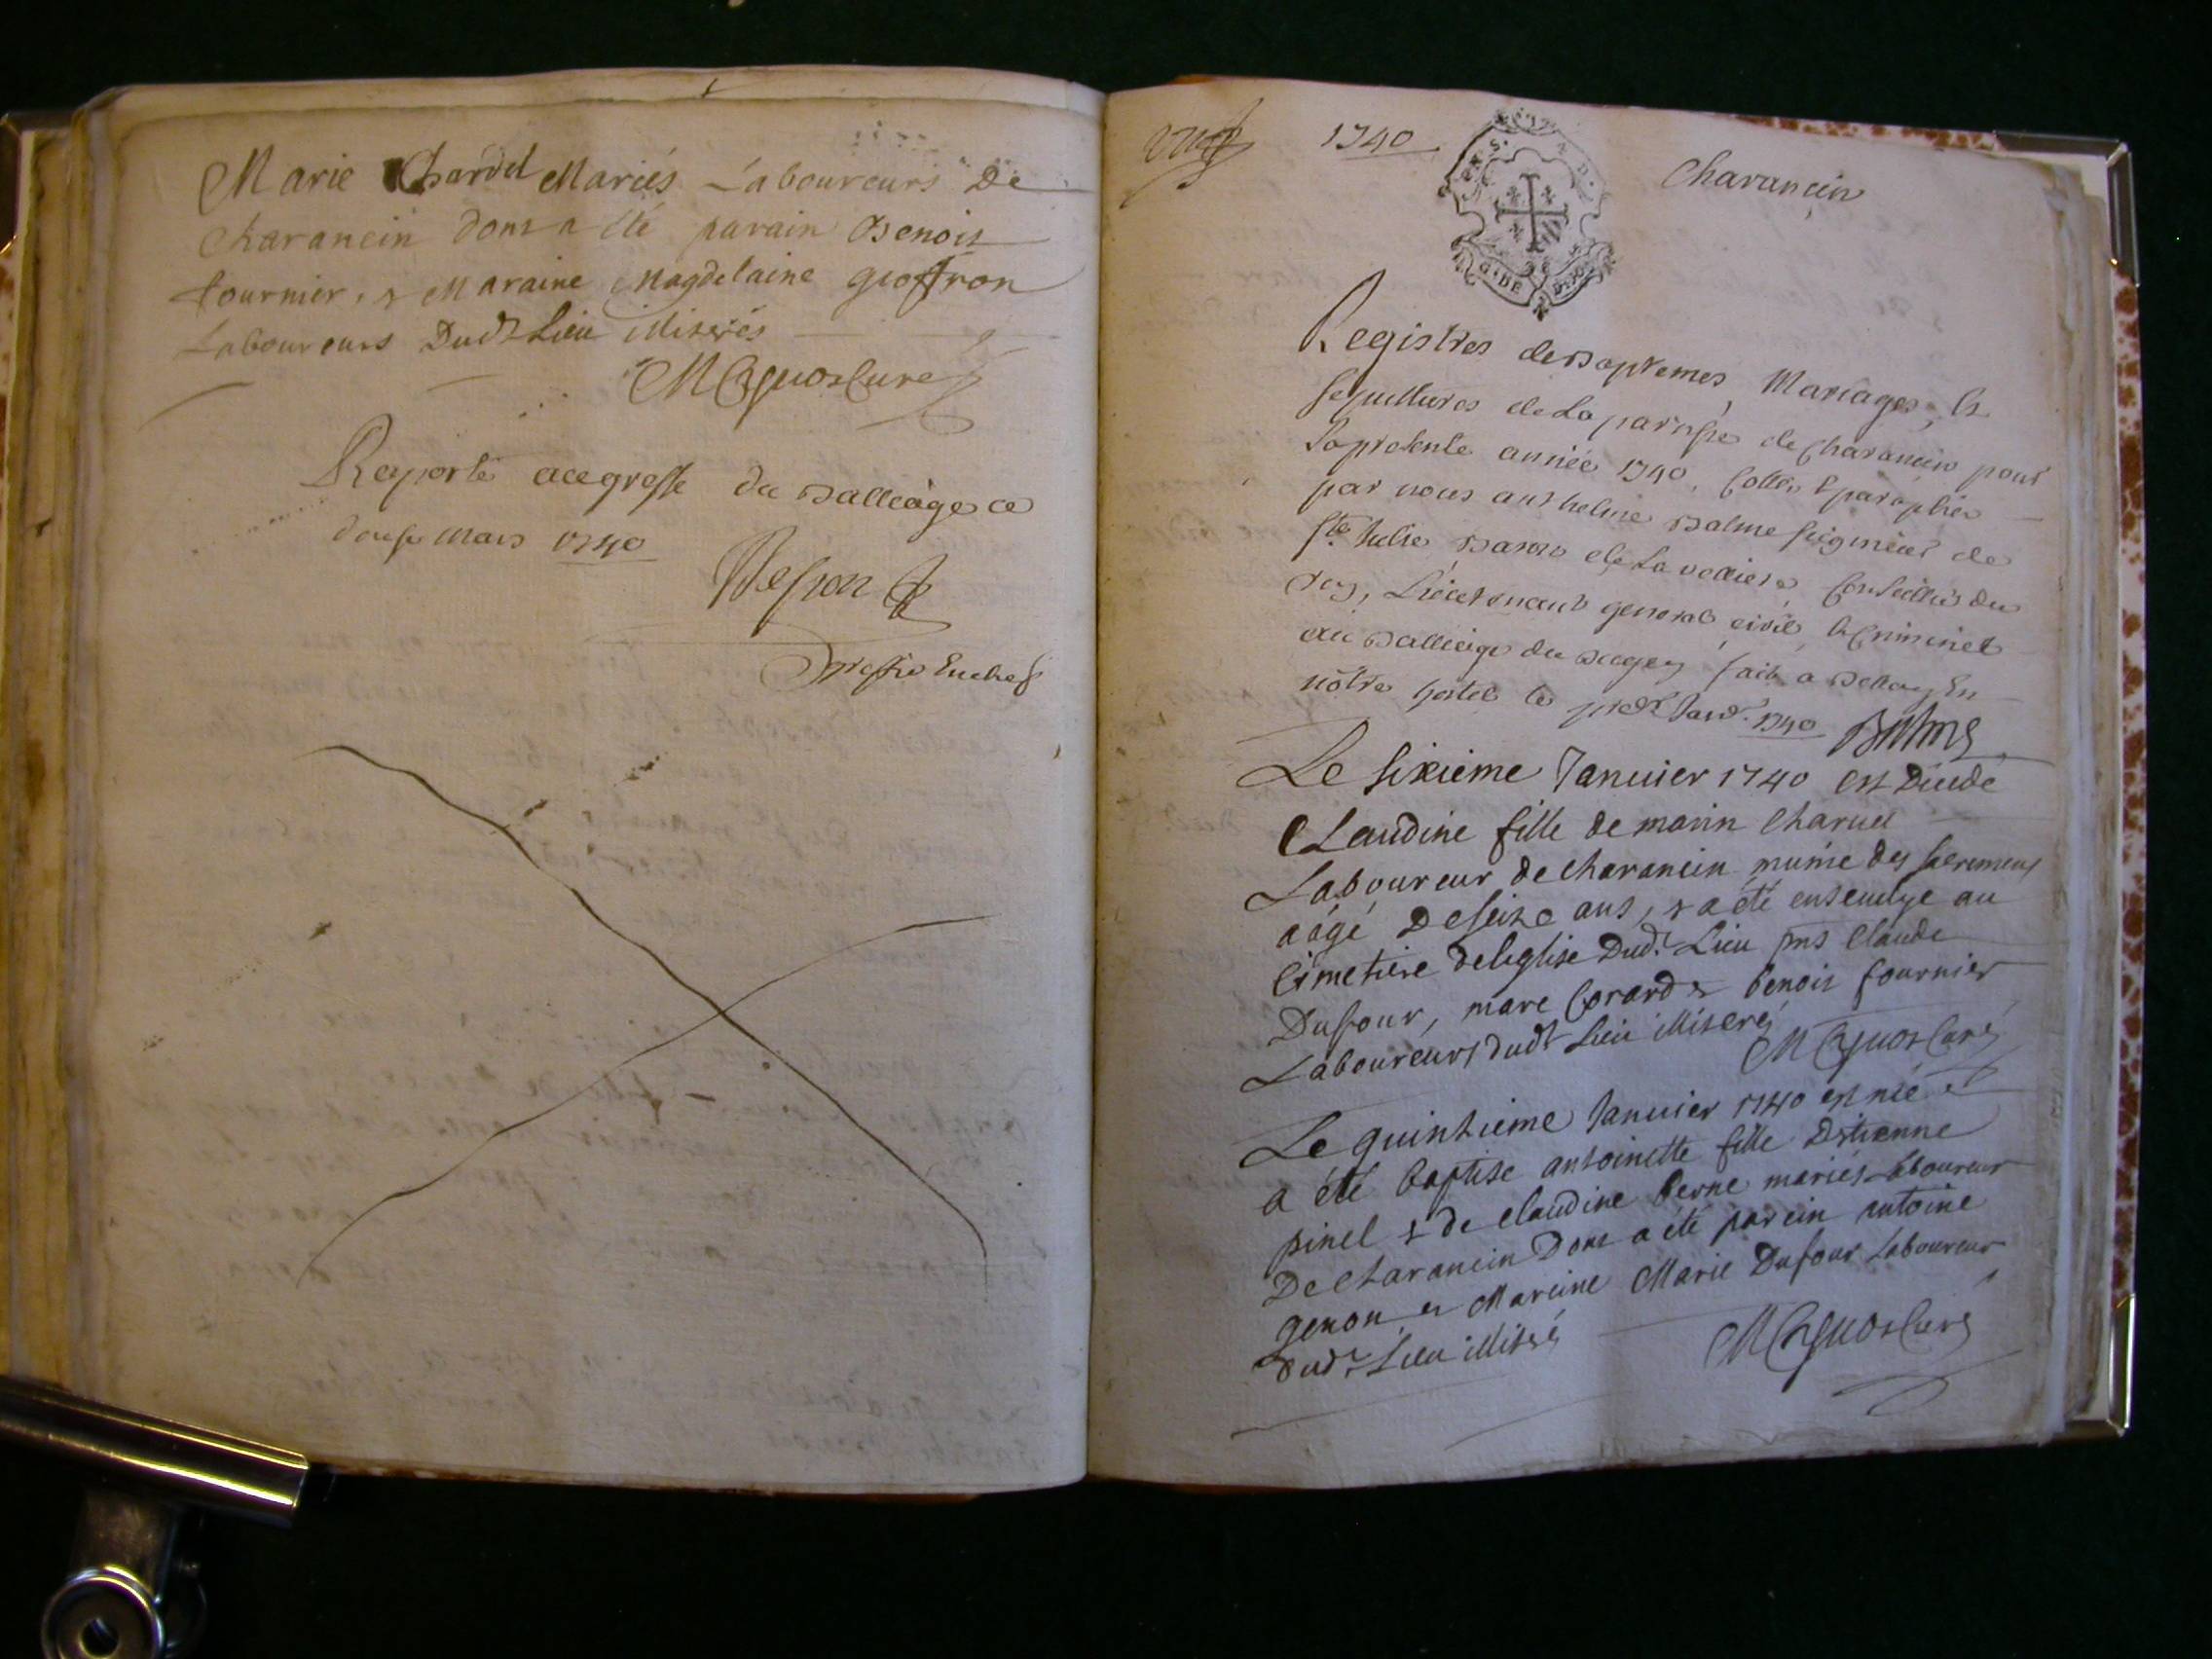 Marie Chardel Mariés Laboureurs De
Charancin dont a été parain Benois
fournier, & Maraine Magdelaine gioffron
Laboureurs Dudt Lieu illiterés
Curé
Reporté au greffe du Balliage ce
douse Mars 1740
Greffier En chef
1740
Charancin
G. DE DIJON
Registres des Baptemes, Mariages, et
sepultures de La paroisse de Charancin pour
La presente année 1740, Cottés & paraphés
par nous anthelme Balme seigneur de
Ste Julie, Baron de La velliere, Conseiller du
Roy, Lieutenant general civil, & Criminel
au Balliage du Bugey fait a Belley En
nôtre hotel le pr Janv. 1740 Balme
Le sixieme Januier 1740 est Decedé
Claudine fille de marin Charuel
Laboureur de Charancin munie des sacremens
aagé De seize ans, & a été ensevelye au
Cimetiere de leglise Dudt. Lieu pns Claude
Dufour, marc Corard & benois fournier
Laboureurs dudt Lieu illiterés
Curé
Le quinzieme Januier 1740 est née &
a été baptisé antoinette fille Destienne
pinel & de Claudine berne mariés Laboureur
De Charancin Dont a été parein antoine
genon et Mareine Marie Dufour Laboureur
dudt. Lieu illiteré
Curé